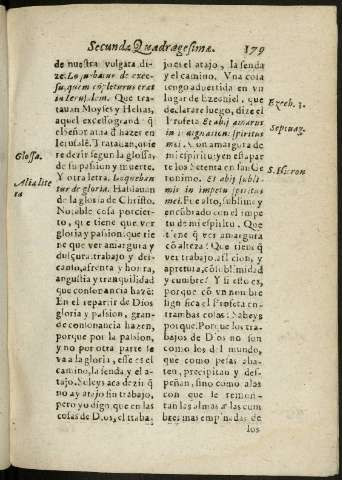 Secunda Quadragesima.
179
de nuestra vulgata, di-
ze. Loquebatur de exces-
su, quem completurus erat
in Ierusalem. Que tra-
tauan Moyses y Helias,
aquel excesso grande q̃
el señor auia d̃ hazer en
Ierusalẽ. Tratauan, quie
re dezir segun la glossa,
de su passion y muerte.
Y otra letra. Loqueban
tur de gloria. Hablauan
de la gloria de Christo.
Notable cosa por cier-
to, que tiene que ver
gloria y passion: que tie
ne que ver amargura y
dulçura: trabajo y des-
canto, afrenta y honra,
angustia y tranquilidad
que consonancia hazẽ:
En el repartir de Dios
gloria y passion, gran-
de consonancia hazen,
porque por la passion,
y no por otra parte se
va a la gloria, esse es el
camino, la senda, y el a-
tajo. Soleys aca dezir q̃
no ay atajo sin trabajo,
pero yo digo, que en las
cosas de Dios, el traba
Glossa.
Alia lite
ra
jo es el atajo, la senda
y el camino. Vna cosa
tengo aduertida en vn
lugar de Ezechiel, que
declararе luego, dize el
Profeta Et abij amarus
in indignatione spiritus
mei. Con amargura de
mi espiritu: y en essa par
te los Setenta en san Ge
ronimo. Et abij subli-
mis in impetu spiritus
mei. Fue alto, sublime y
encubrado con el impe
tu de mi espiritu. Que
tiene q̃ ver amargura
cõ alteza: Que tiene q̃
ver trabajo, afliction, y
apretura, cõ sublimidad
y cumbre? Y si esto es,
porque cõ vn nombre
significa el Profeta en-
trambas cosas: Sabeys
porque. Porque los tra-
bajos de Dios no son
como los del mundo,
que como pesas aba-
ten, precipitan y des-
peñan, sino como alas
con que se remon-
tan las almas a las cum
bres mas empinadas de
los
Ezech. 3.
Septuag.
S. Hieron